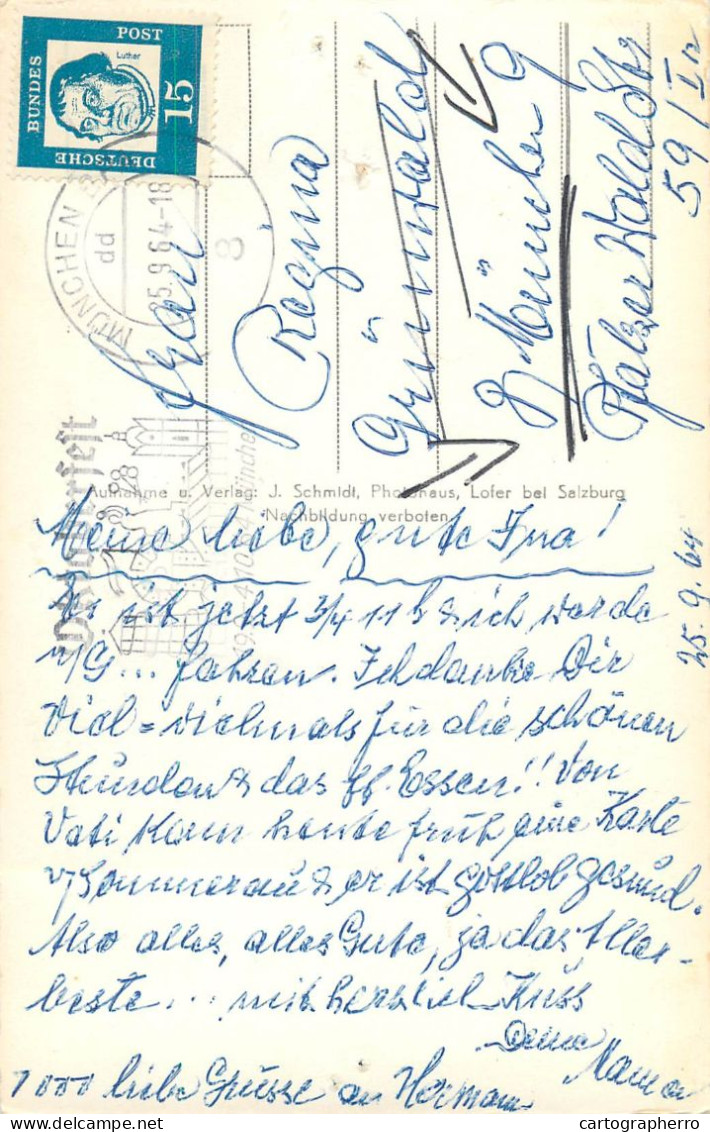 DEUTSCHE BUNDESPOST
Luther
15
MÜNCHEN
dd
25.9.64-18
8
Oktoberfest
München
Frau
Regina
Grünwald
8 München 9
Pfälzer Wald Str
59/I r
Aufnahme u. Verlag: J. Schmidt, Photohaus, Lofer bei Salzburg
Nachbildung verboten
25.9.64
Meine liebe, gute Ina!
Es ist jetzt 3/4 11 h & ich werde
n/G... fahren. Ich danke Dir
viel=vielmals für die schönen
Stunden & das ff. Essen!! Von
Vati kam heute früh eine Karte
v/Sommerau & er ist gottlob gesund.
Also alles, alles Gute, ja das Aller-
beste... mit herzlich Kuss
Deine Mama
1000 liebe Grüsse an Hermann
cartographerro